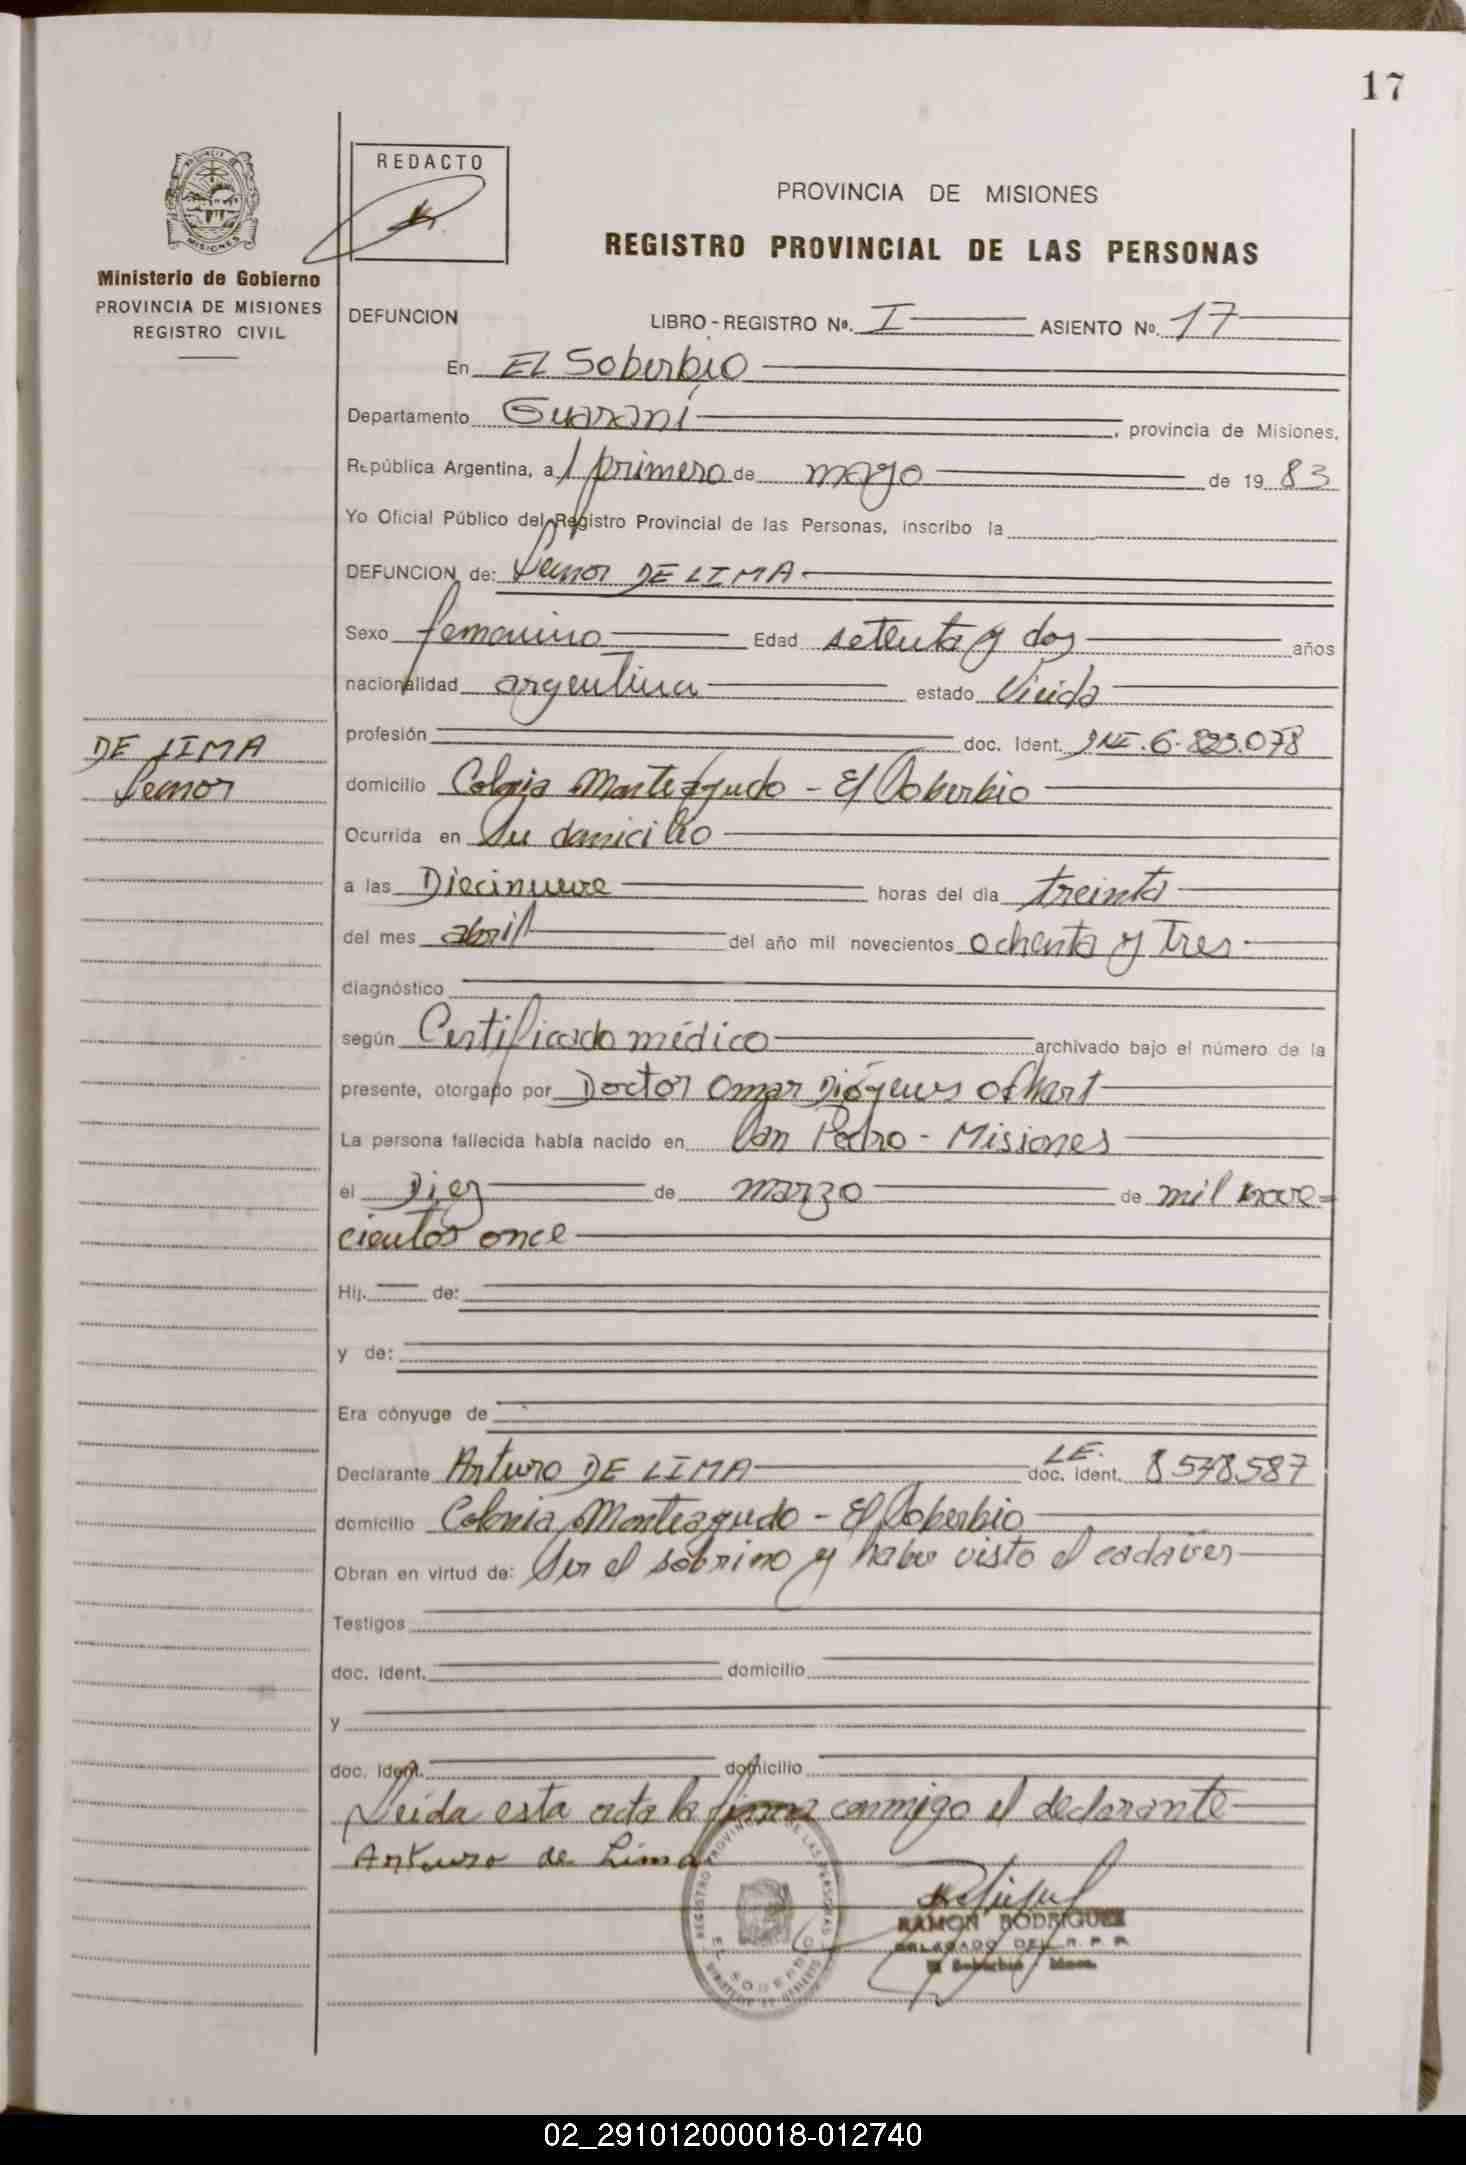 17
REDACTO
PROVINCIA DE MISIONES
REGISTRO PROVINCIAL DE LAS PERSONAS
MISIONES
Ministerio de Gobierno
PROVINCIA DE MISIONES
REGISTRO CIVIL
DEFUNCION LIBRO-REGISTRO Nº. I ASIENTO Nº. 17
En EL Soberbio
Departamento Guaraní, provincia de Misiones,
República Argentina, a primero de mayo de 1983
Yo Oficial Público del Registro Provincial de las Personas, inscribo la
DEFUNCION de: Leunor DE LIMA
Sexo femenino Edad setenta y dos años
nacionalidad argentina estado Viuda
profesión doc. Ident. DNI. 6.823.078
DE LIMA
domicilio Colonia Monteagudo - El Soberbio
Ocurrida en Su domicilio
a las Diecinueve horas del día treinta
del mes abril del año mil novecientos ochenta y tres
diagnóstico
según Certificado médico archivado bajo el número de la
presente, otorgado por Doctor Omar Diógenes
La persona fallecida había nacido en San Pedro - Misiones
el Diez de marzo de mil nove=
cientos once
Hij. de:
y de:
Era cónyuge de
Declarante Arturo DE LIMA L.E. doc. ident. 8578587
domicilio Colonia Monteagudo - El Soberbio
Obran en virtud de: Ser el sobrino y haber visto el cadáver
Testigos
doc. ident. domicilio
y
doc. ident. domicilio
Leída esta acta la firma conmigo el declarante
Arturo de Lima
REGISTRO PROVINCIAL DE LAS PERSONAS
EL SOBERBIO
RAMON RODRIGUEZ
DELEGADO DEL R. P. P.
El Soberbio
02_291012000018-012740